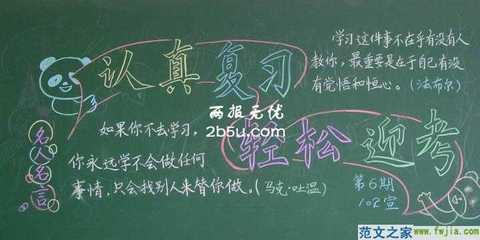 认真复习
学习这件事不在乎有没有人
教你，最重要是在于自己有没
有觉悟和恒心。（法布尔）
两报无忧
2b5u.com
轻松迎考
名人名言
如果你不去学习，
你永远学不会做任何
事情，只会找别人来替你做。（马克·吐温）
第6期
102宣
范文之家
www.fwjia.com